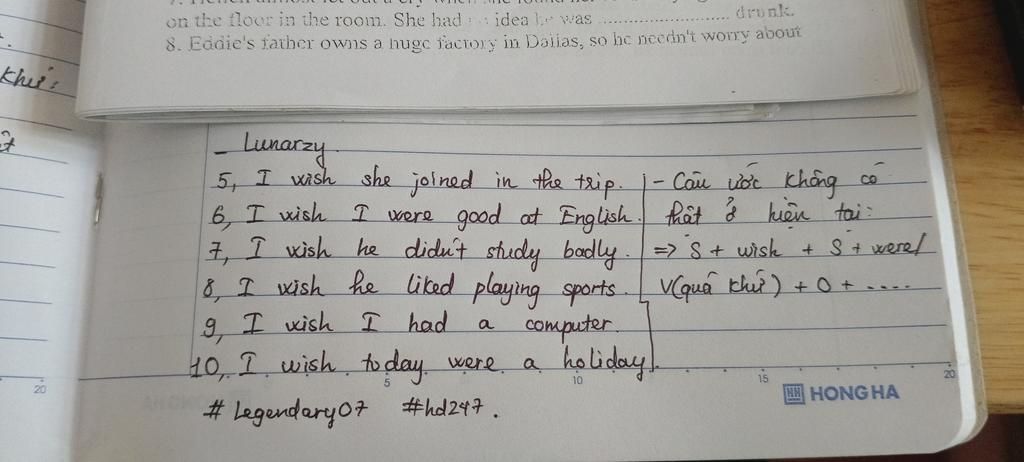 on the floor in the room. She had idea he was ........................... drunk.
8. Eddie's father owns a huge factory in Dallas, so he needn't worry about
khứ:
- Lunarzy.
5, I wish she joined in the trip.
6, I wish I were good at English.
7, I wish he didn't study badly.
8, I wish he liked playing sports.
9, I wish I had a computer.
10, I wish today were a holiday.
- Câu ước không có
thật ở hiện tại:
=> S + wish + S + were/
V(quá khứ) + O + ....
5 10 15 20
20
HH HONG HA
# Legendary07 #hd247.